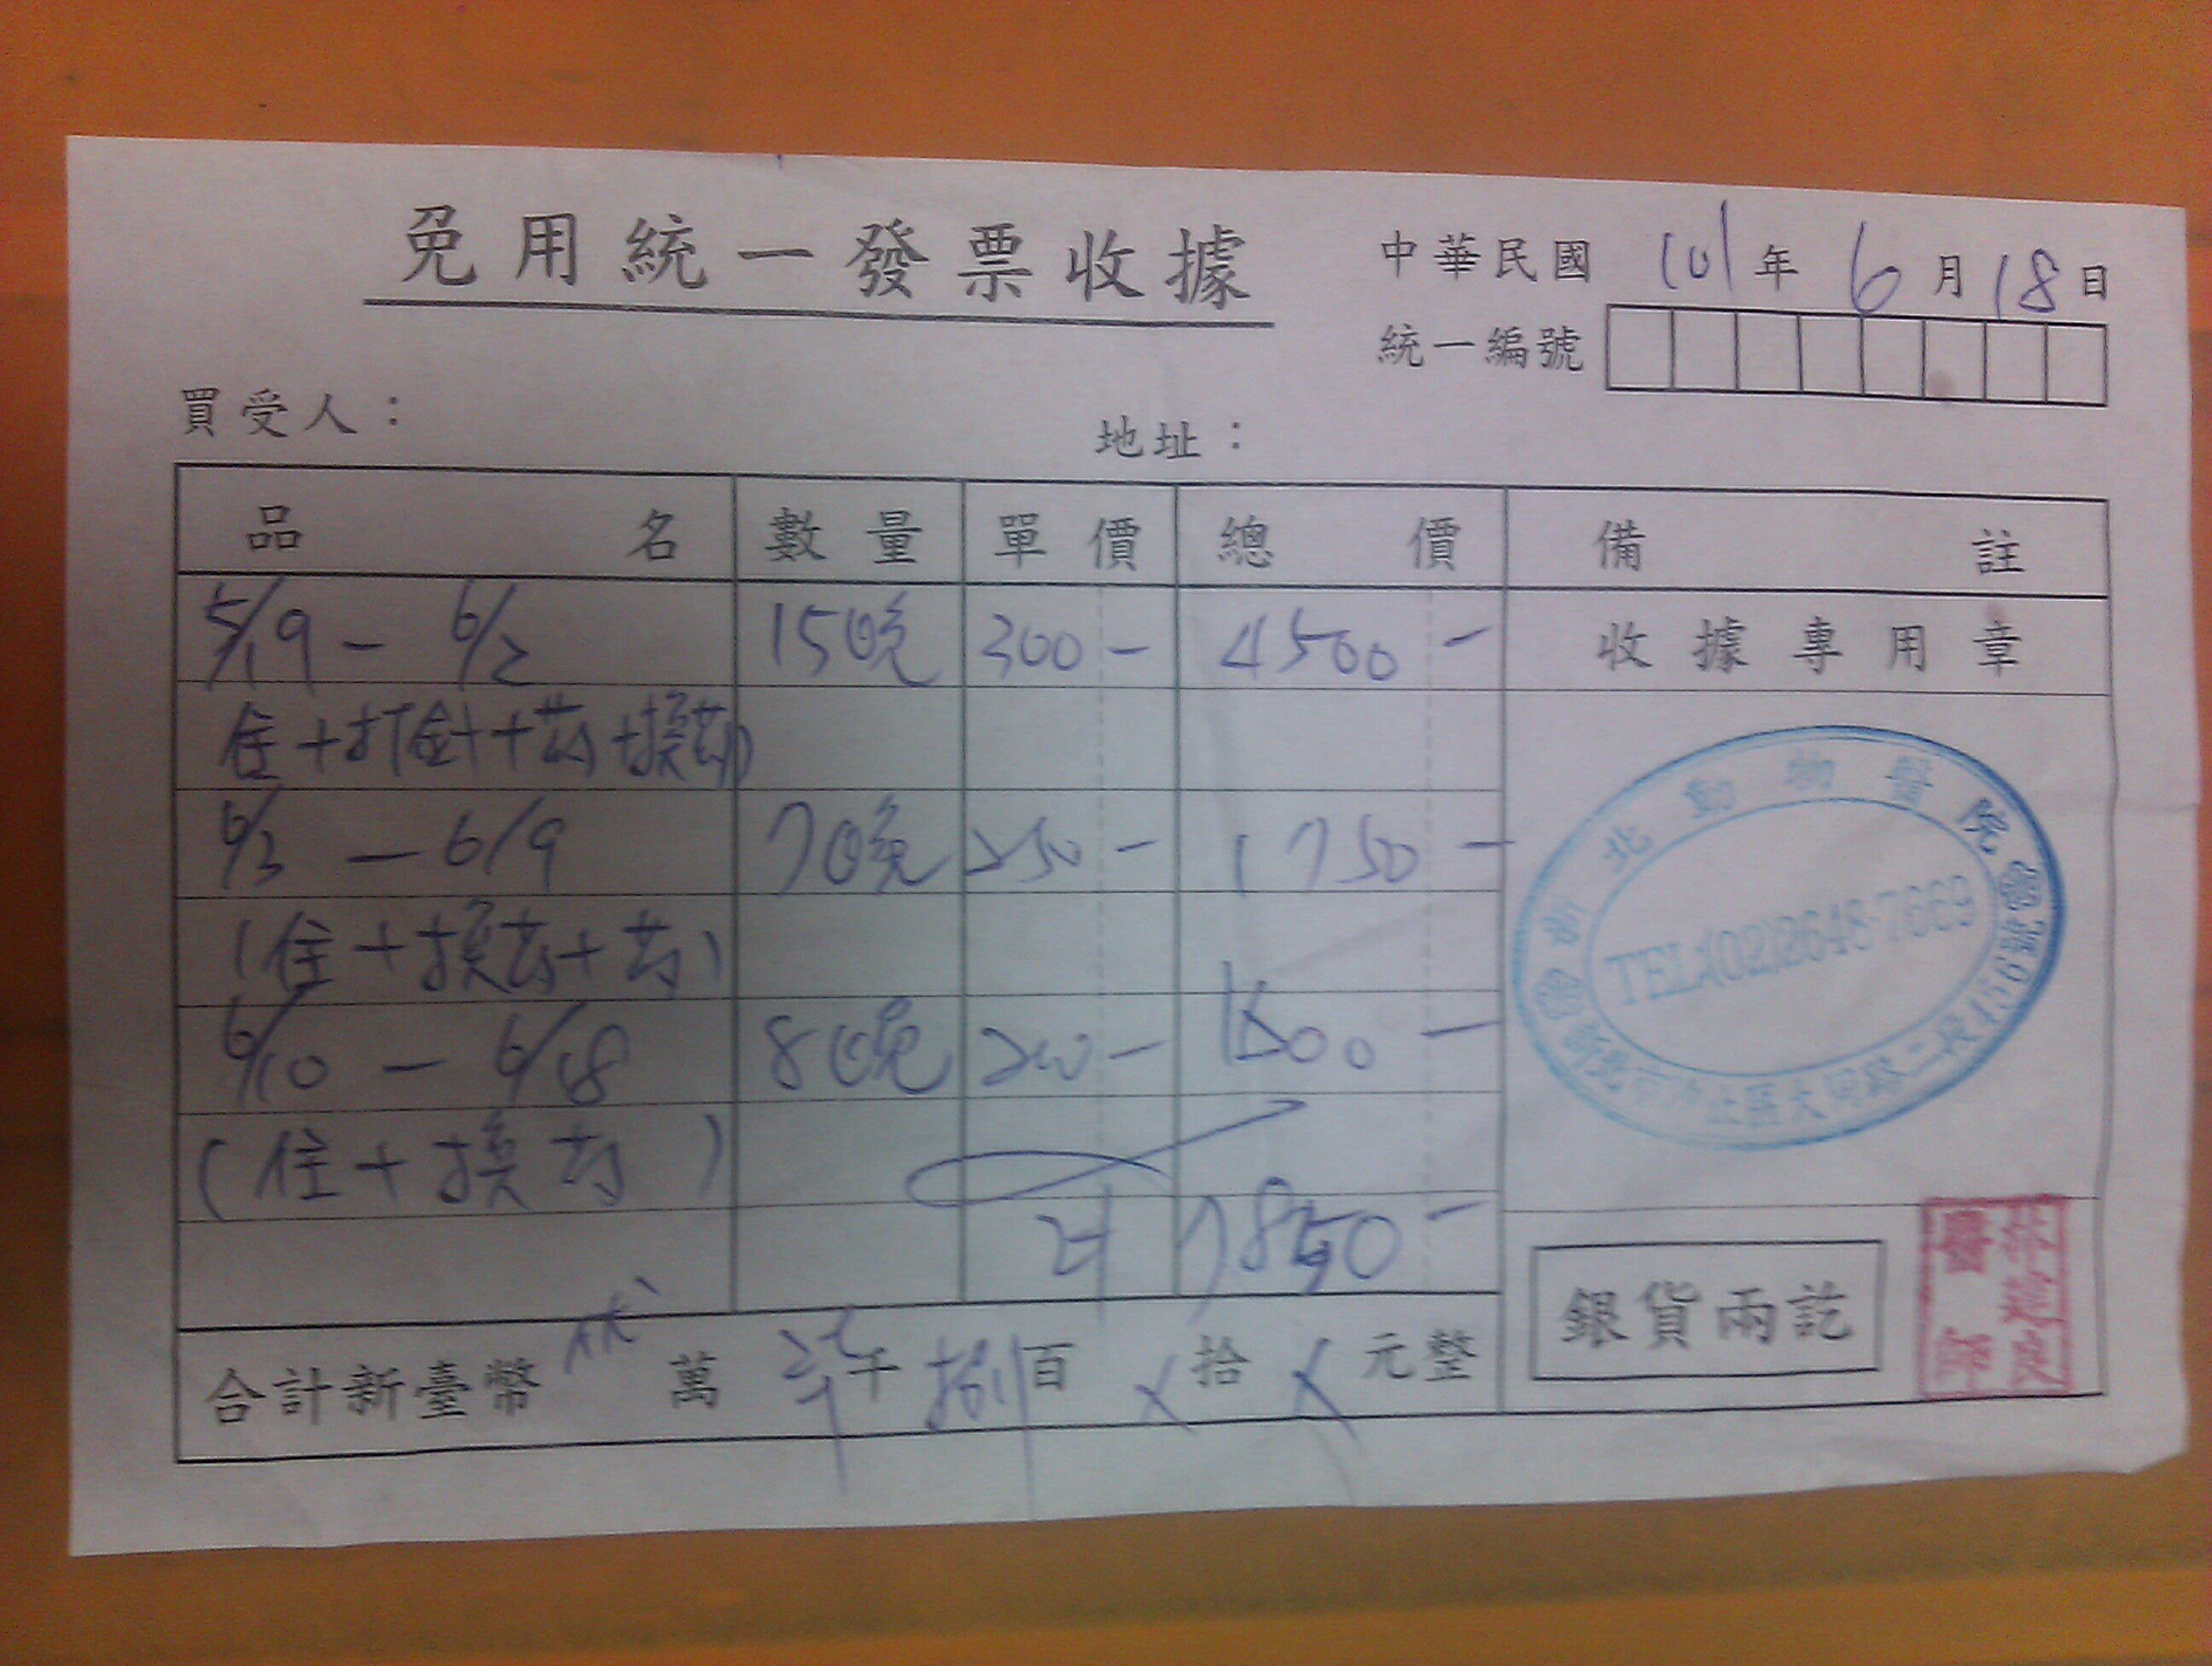 免用統一發票收據
中華民國 101年 6月 18日
統一編號
買受人：
地址：
品名 數量 單價 總價 備註
5/19 - 6/2 15晚 300- 4500-
收據專用章
住+打針+葯+換葯
6/3 - 6/9 7晚 250- 1750-
(住+換葯+葯)
6/10 - 6/18 8晚 200- 1600-
(住+換葯)
計 7850-
合計新臺幣 萬 柒千 捌百 拾 元整
北動物醫院
TEL:(02)2648-7669
新北市汐止區大同路二段456號
銀貨兩訖
林建良
醫師